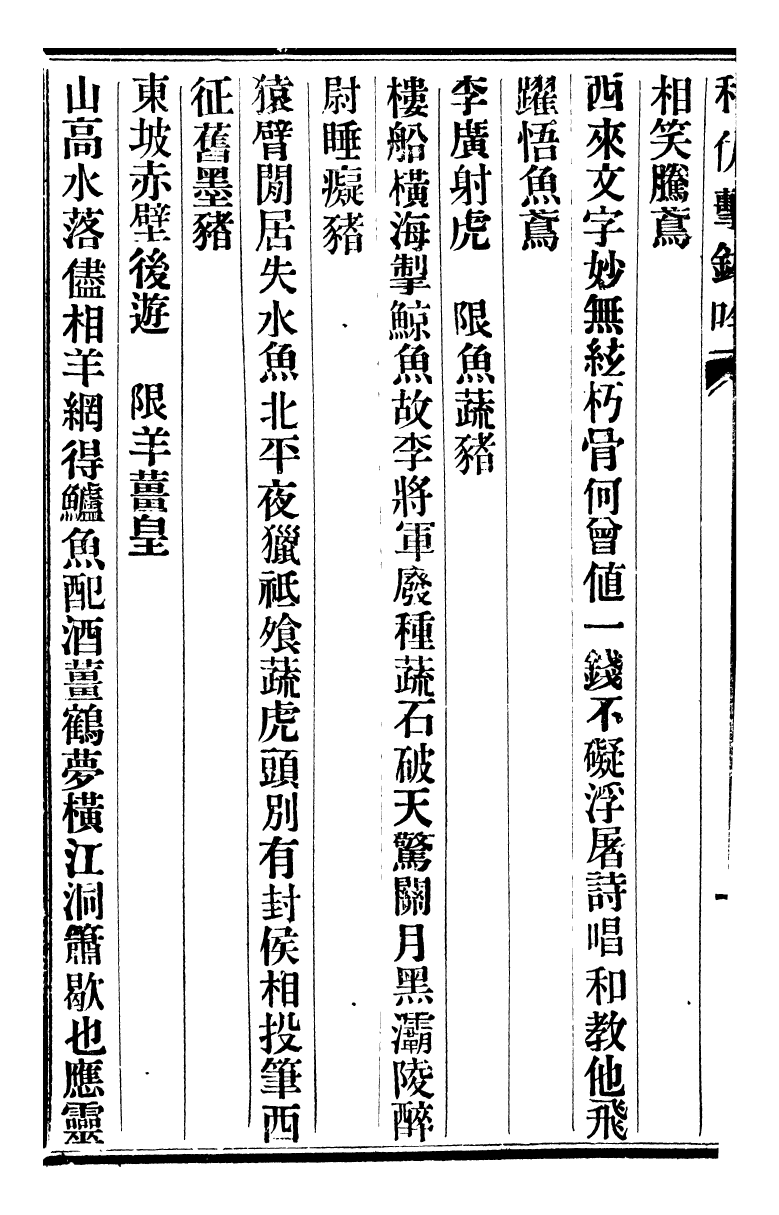 相笑騰鳶
西來文字妙無絃朽骨何曾值一錢不礙浮屠詩唱和教他飛
躍悟魚鳶
李廣射虎　限魚蔬豬
樓船橫海掣鯨魚故李將軍廢種蔬石破天驚關月黑灞陵醉
尉睡癡豬
猿臂閒居失水魚北平夜獵祗飧蔬虎頭別有封侯相投筆西
征舊墨豬
東坡赤壁後遊　限羊薑皇
山高水落儘相羊網得鱸魚配酒薑鶴夢橫江洞簫歇也應靈